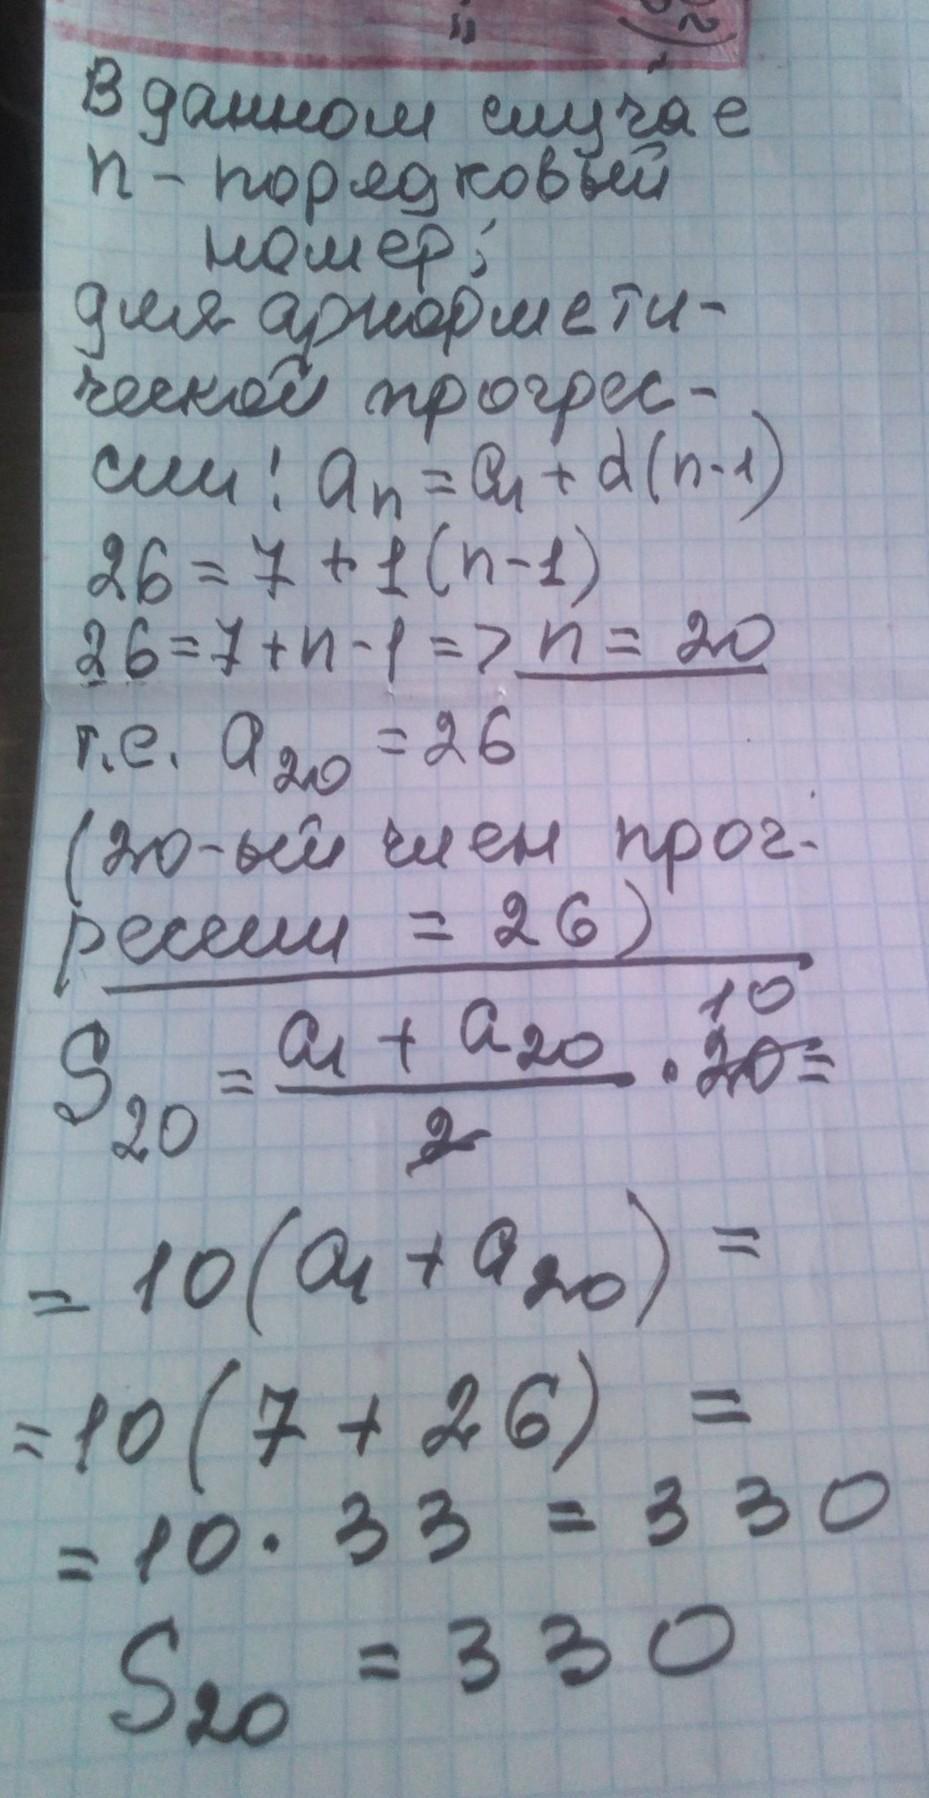 В данном случае
n - порядковый
номер;
для арифмети-
ческой прогрес-
сии: aₙ = a₁ + d(n-1)
26 = 7 + 1(n-1)
26 = 7 + n - 1 => n = 20
т.е. a₂₀ = 26
(20-ый член прог-
рессии = 26)
S₂₀ = (a₁ + a₂₀)/2 · 20 = 10
= 10(a₁ + a₂₀) =
= 10(7 + 26) =
= 10 · 33 = 330
S₂₀ = 330